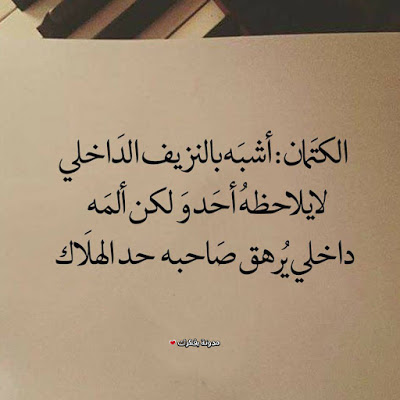 الكتَمان : أشبَه بالنزيف الدَاخلي
لايلاحظهُ أحَد وَ لكن ألمَه
داخلي يُرهق صَاحبه حد الهلَاك
مدونة بفكرك